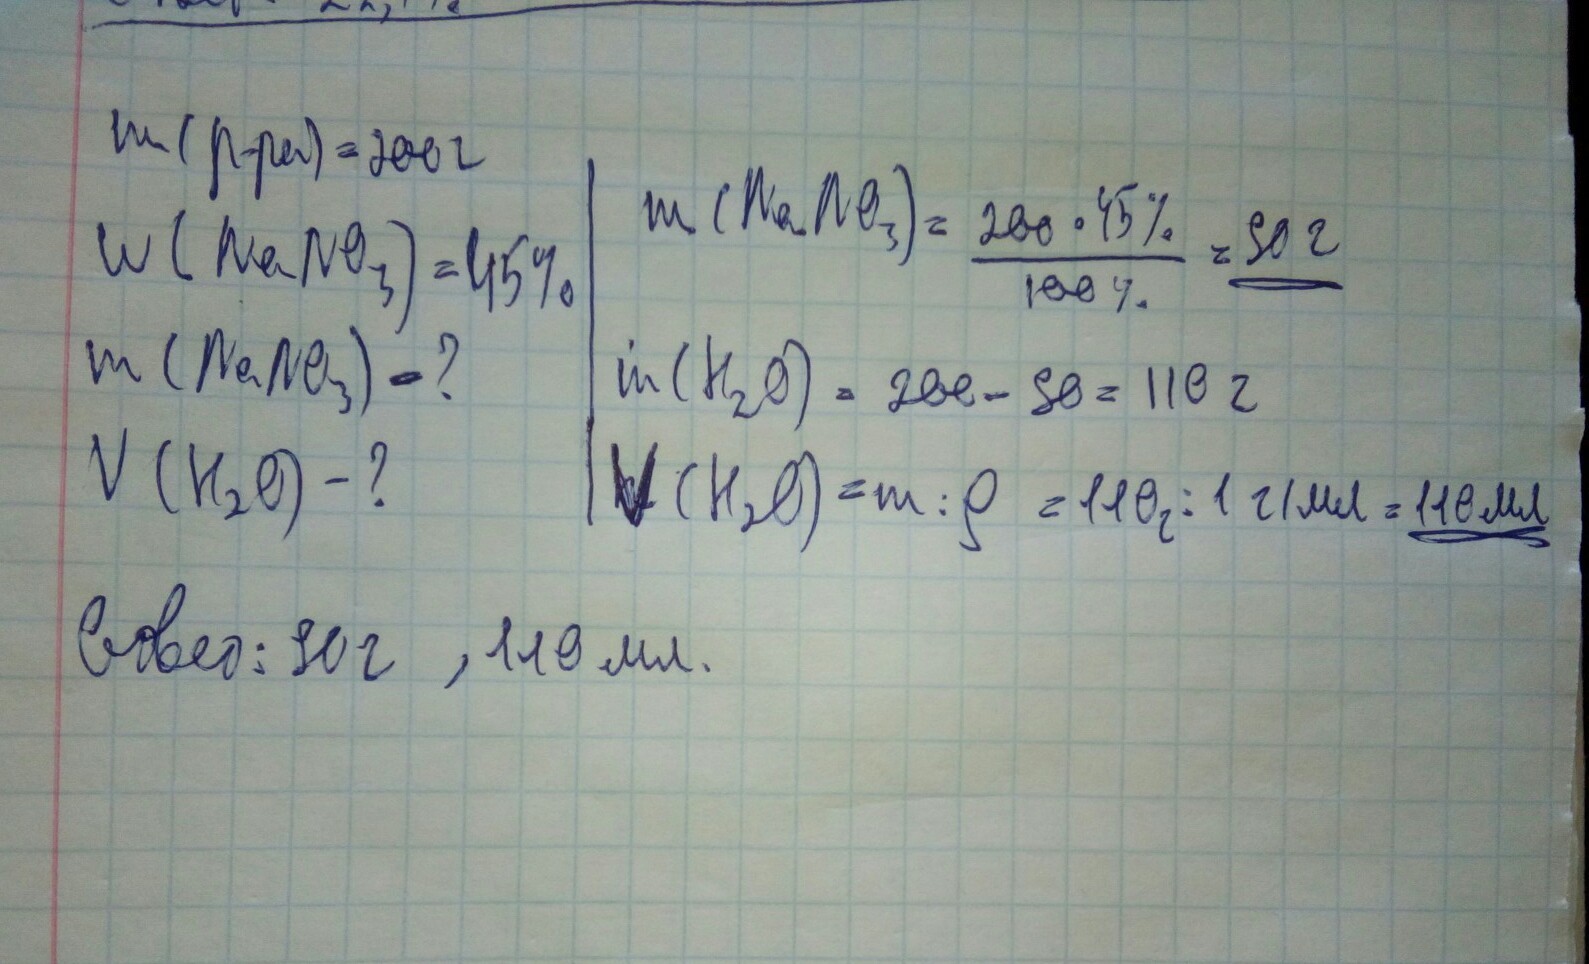 m(р-ра)=200г
W(NaNO₃)=45%
m(NaNO₃)-?
V(H₂O)-?
m(NaNO₃)= 200·45% / 100% = 90г
m(H₂O) = 200-90=110г
V(H₂O)=m:ρ =110г:1г/мл=110мл
Ответ: 90г , 110мл.